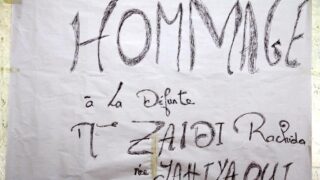 HOMMAGE
à La Défunte
Mme ZAIDI Rachida
née YAHIYAOUI